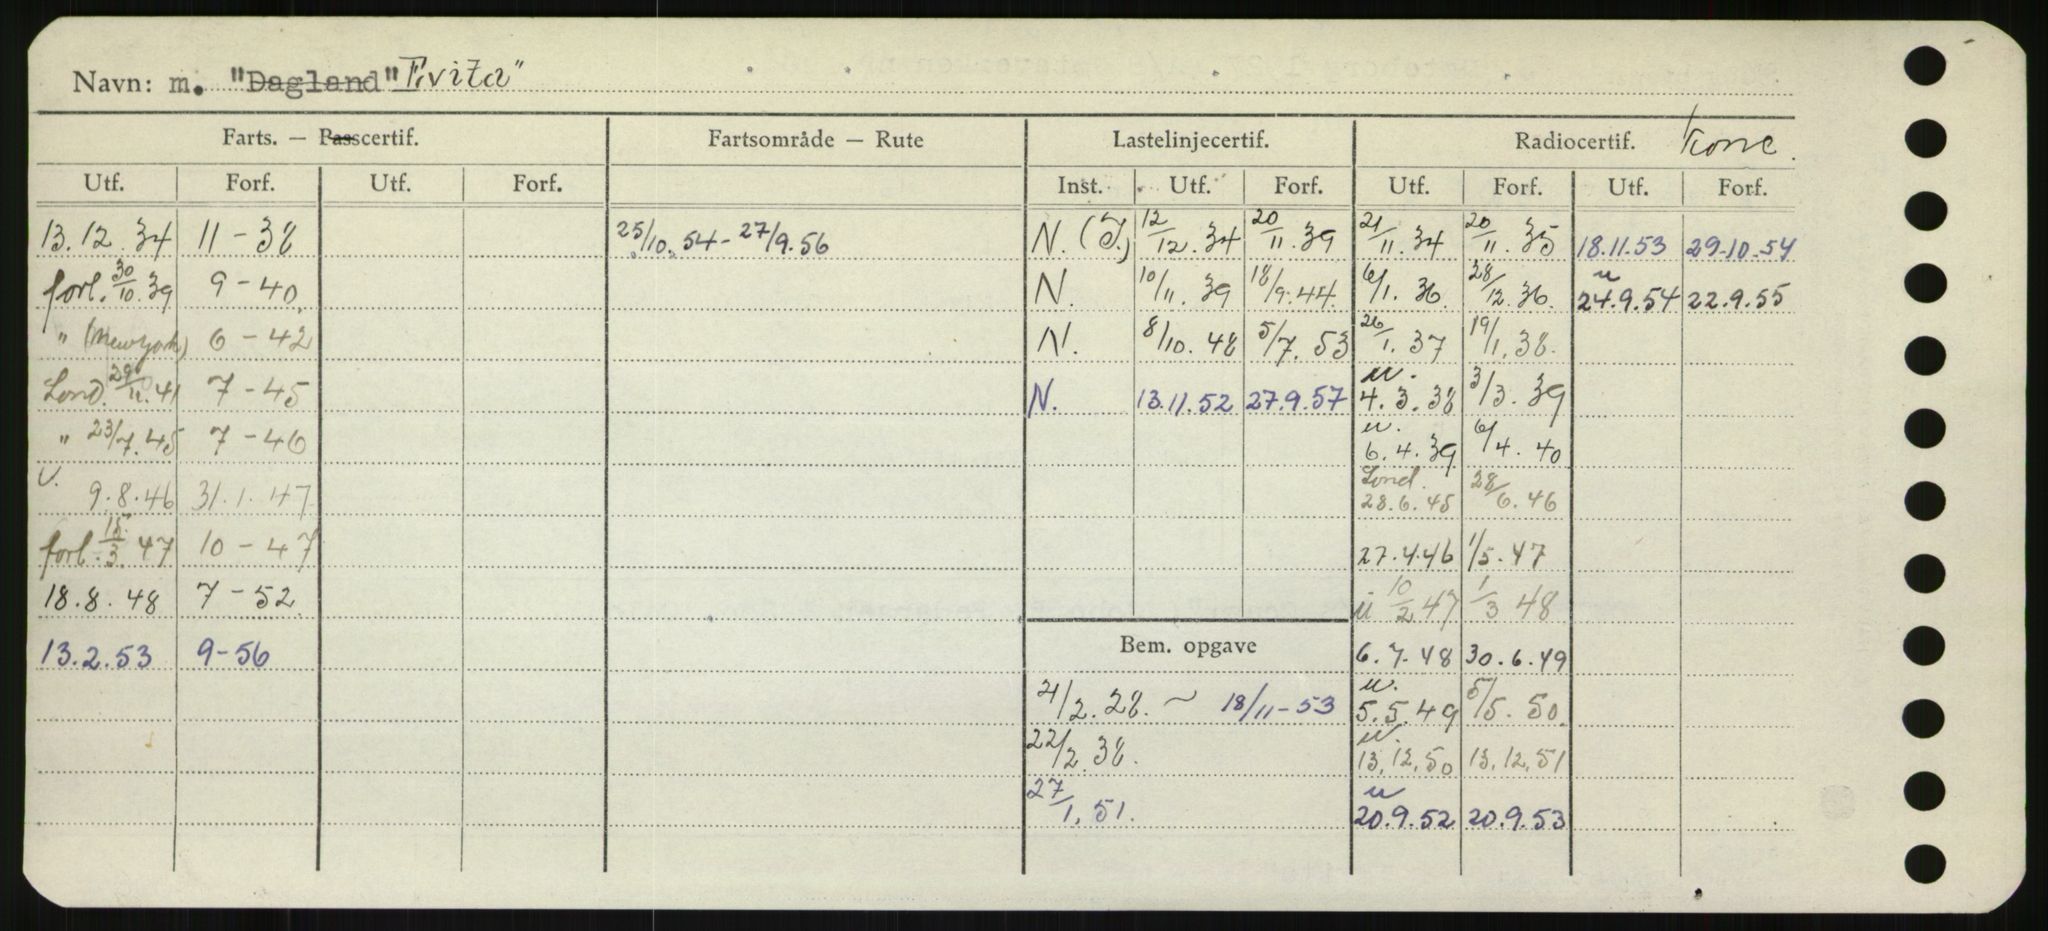 Navn: m. "Dagland" "Evita"
Farts. — Passcertif. Fartsområde — Rute Lastelinjecertif. Radiocertif. Konc.
Utf. Forf. Utf. Forf. Inst. Utf. Forf. Utf. Forf. Utf. Forf.
13.12.34 11-38 25/10.54-27/9.56 N. (I.) 12/12.34 20/11.39 21/11.34 20/11.35 18.11.53 29-10-54
forl. 30/10.39 9-40 N. 10/11.39 18/9.44 6/1.36 28/12.36 u 24.9.54 22.9.55
" (New York) 6-42 N. 8/10.48 5/7.53 26/1.37 19/1.38
Lond. 29/11.41 7-45 N. 13.11.52 27.9.57 u. 4.3.38 3/3.39
" 23/7.45 7-46 u. 6.4.39 6/4.40
U. 9.8.46 31.1.47 Lond. 28.6.45 28/6.46
forl. 15/3.47 10-47 27.4.46 1/5.47
18.8.48 7-52 u 10/2 47 1/3 48
13.2.53 9-56 Bem. opgave 6.7.48 30.6.49
21/2.28. ~ 18/11-53 u. 5.5.49 5/5.50
22/2.38. u. 13.12.50 13.12.51
27/1.51. u 20.9.52 20.9.53